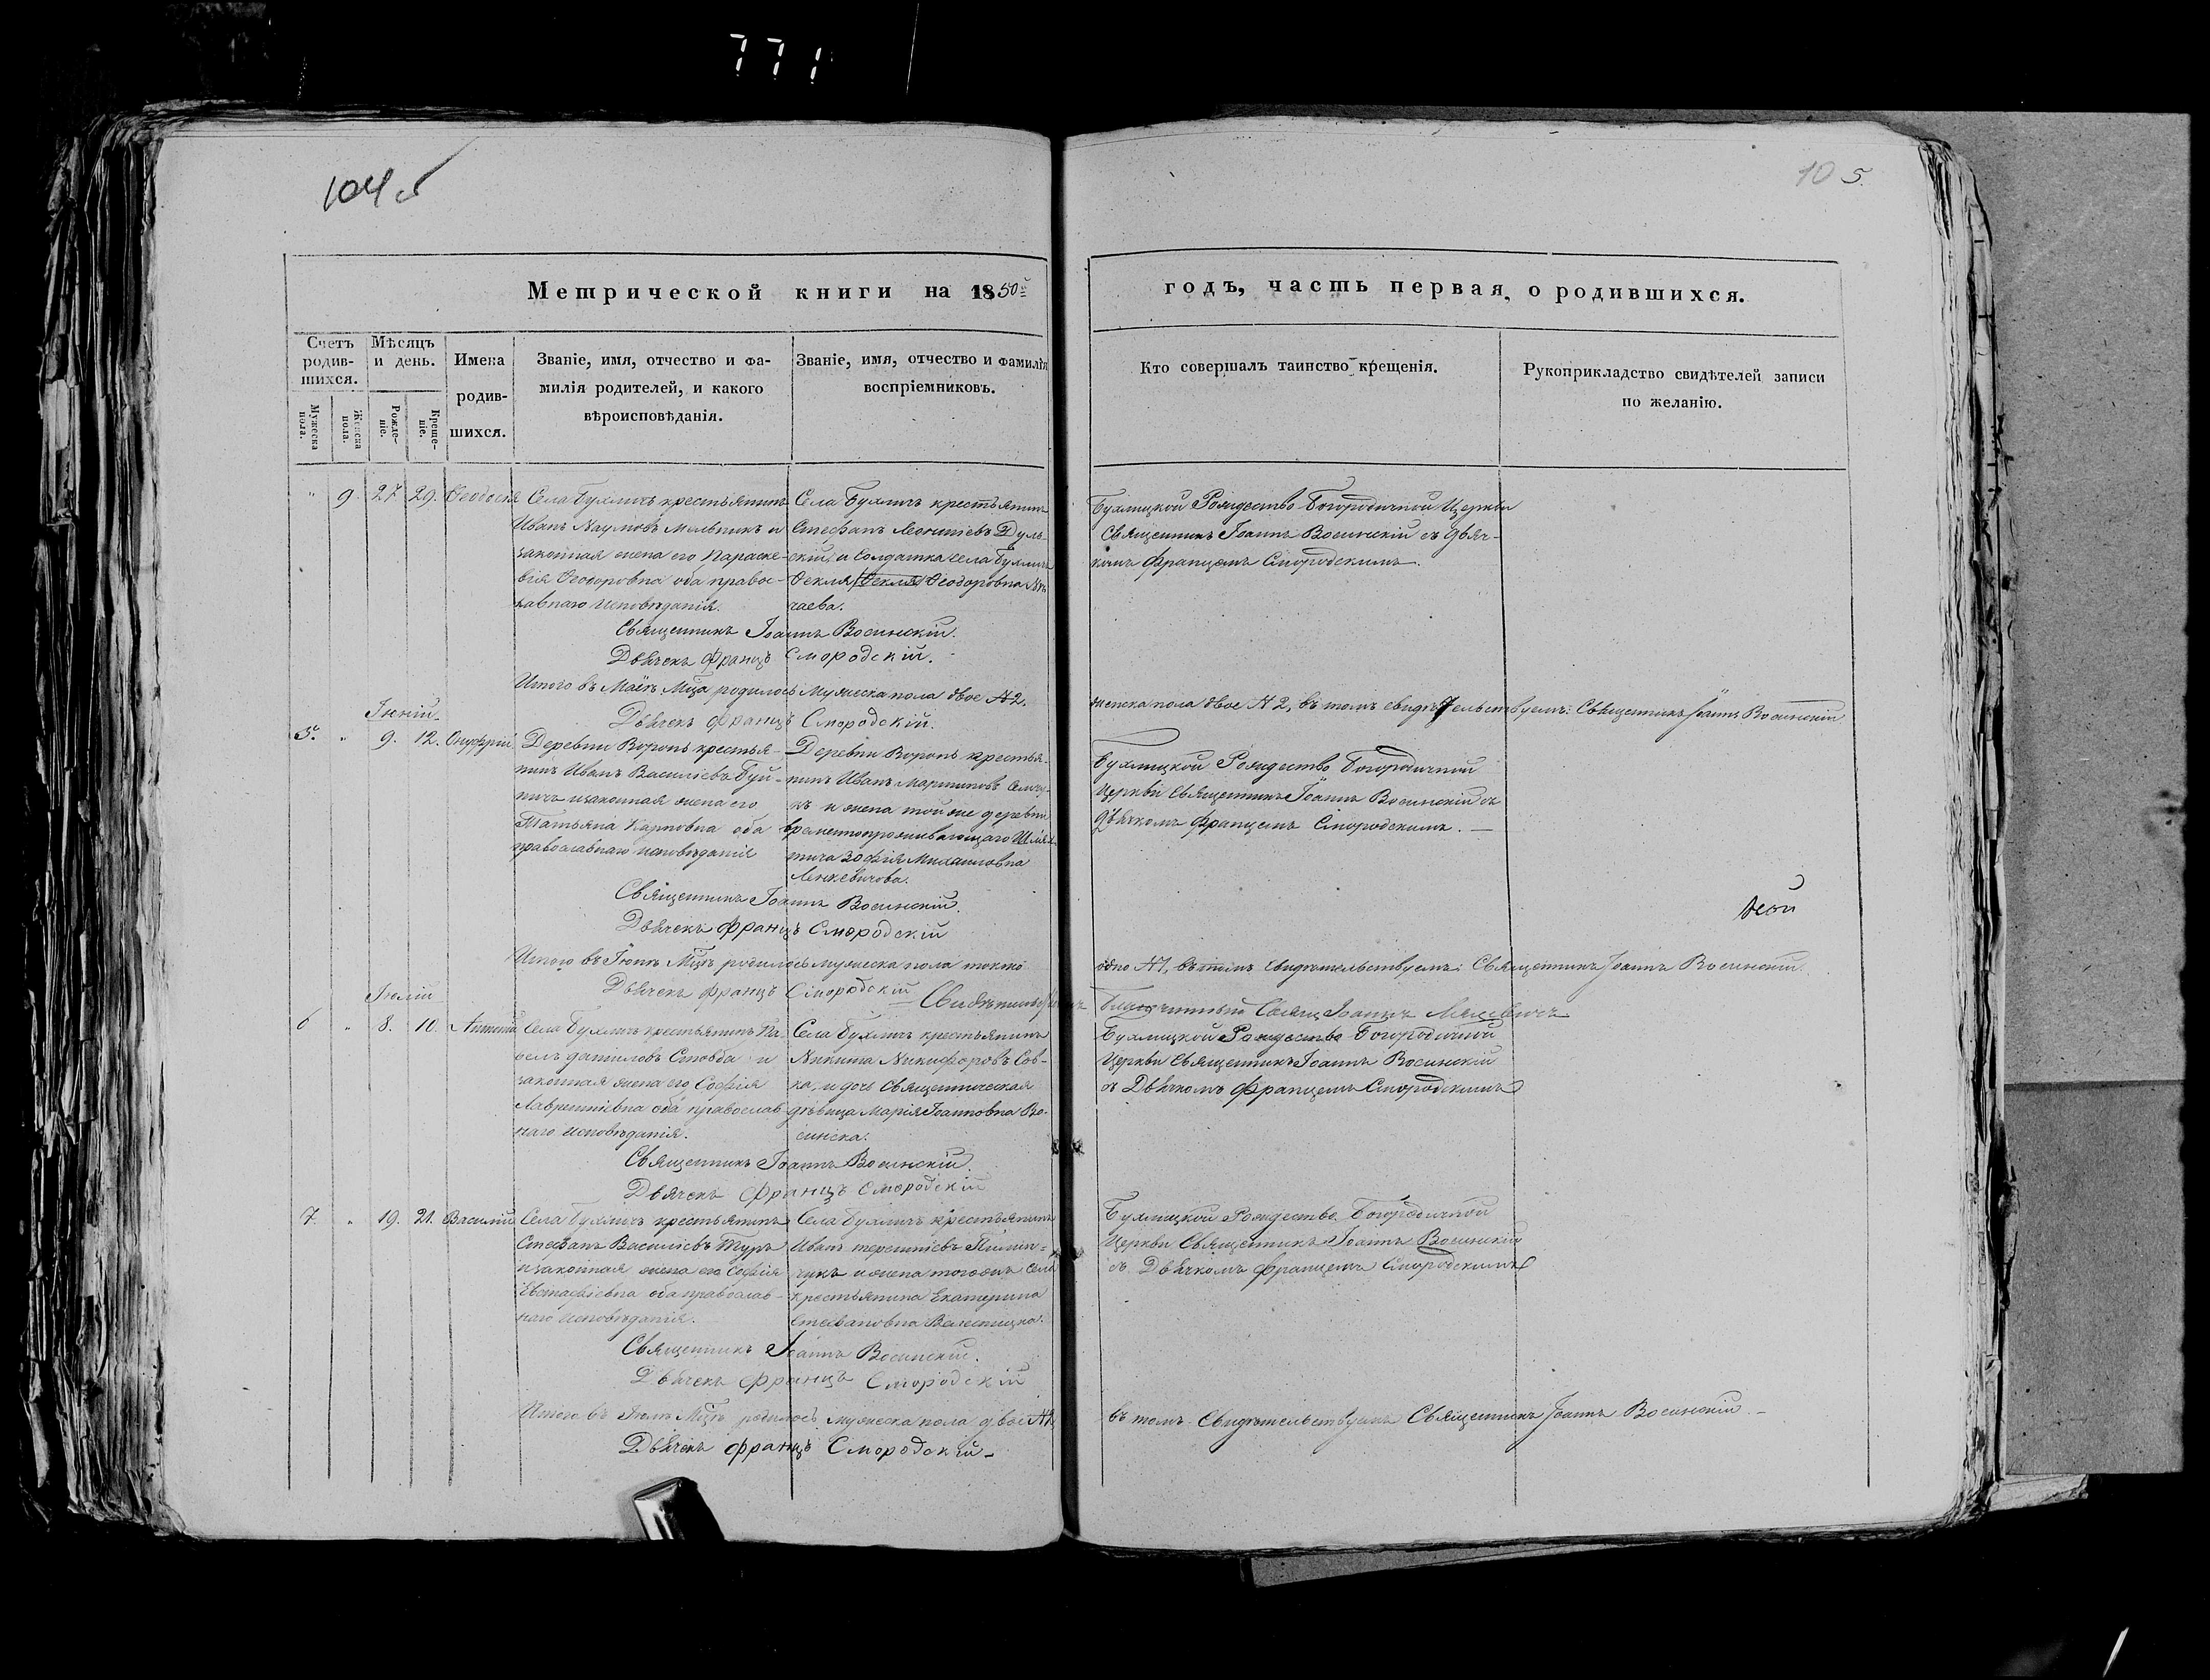 771
104 об
105.
Метрической книги на 1850й
годъ, часть первая, о родившихся.
Счетъ родившихся.
Мужеска пола.
Женска пола.
Мѣсяцъ и день.
Рожденіе.
Крещеніе.
Имена родившихся.
Званіе, имя, отчество и фамилія родителей, и какого вѣроисповѣданія.
Званіе, имя, отчество и фамилія воспріемниковъ.
Кто совершалъ таинство крещенія.
Рукоприкладство свидѣтелей записи по желанію.
" 9. 27 29. Ѳеодосія
Села Бухличъ крестьянинъ
Иванъ Наумовъ Мельникъ и
законная жена его Параске-
вія Ѳеодоровна оба правос-
лавнаго исповѣданія.
Села Бухличъ крестьянинъ
Стефанъ Леонтіевъ Дуль-
скій и солдатка села Бухличъ
Ѳекла Ѳекла Ѳеодоровна
чаева.
Бухлицкой Рождество-Богородичной Церкви
Священникъ Іоаннъ Восинскій съ дьяч-
комъ Францемъ Смородскимъ.
Священникъ Іоаннъ Восинскій.
Дьячекъ Францъ Смородскій.
Итого въ Маѣ Мца родилось мужеска пола двое №2.
женска пола двое №2, въ томъ свидѣтельствуемъ: Священникъ Іоаннъ Восинскій
Дьячекъ Францъ Смородскій.
Іюній
5. " 9. 12. Онуфрій
Деревни Воронь крестья-
нинъ Иванъ Василіевъ Буй-
ничъ и законная жена его
Татьяна Карповна оба
православнаго исповѣданія
Деревни Воронь крестья-
нинъ Иванъ Мартиновъ
и жена той же деревни
временнопроживающаго Шлях-
тича Зофія Михаиловна
Ленкевичова.
Бухлицкой Рождество Богородичной
Церкви Священникъ Іоаннъ Восинскій съ
Дьячкомъ Францемъ Смородскимъ.
Священникъ Іоаннъ Восинскій.
Дьячекъ Францъ Смородскій
Итого въ Іюнѣ Мцѣ родилось мужеска пола токмо
одно №1, въ томъ свидѣтельствуемъ: Священникъ Іоаннъ Восинскій.
Дьячекъ Францъ Смородскій
Благочинный Свящ Іоаннъ
Іюлій
6 " 8. 10. Антоній
Села Бухличъ крестьянинъ Па-
велъ Даніловъ Стовба и
законная жена его Софія
Лаврентіевна оба православ-
наго исповѣданія.
Села Бухличъ крестьянинъ
Никита Никифоровъ Сов-
ка, и дочь Священническая
дѣвица Марія Іоанновна Во-
синска.
Бухлицкой Рождество Богородичной
Церкви Священникъ Іоаннъ Восинскій
съ Дьячкомъ Францемъ Смородскимъ
Священникъ Іоаннъ Восинскій.
Дьячекъ Францъ Смородскій
7. " 19. 21. Василій
Села Бухличъ крестьянинъ
Стефанъ Василіевъ Туръ
и законная жена его Софія
Евстафіевна оба православ-
наго исповѣданія.
Села Бухличъ крестьянинъ
Иванъ Терентіевъ
чикъ и жена тогожъ села
крестьянина Екатерина
Стефановна
Бухлицкой Рождество Богородичной
Церкви Священникъ Іоаннъ Восинскій
съ Дьячкомъ Францемъ Смородскимъ
Священникъ Іоаннъ Восинскій.
Дьячекъ Францъ Смородскій
Итого въ Іюлѣ Мцѣ родилось мужеска пола двое №2,
въ томъ Свидѣтельствуемъ Священникъ Іоаннъ Восинскій.
Дьячекъ Францъ Смородскій